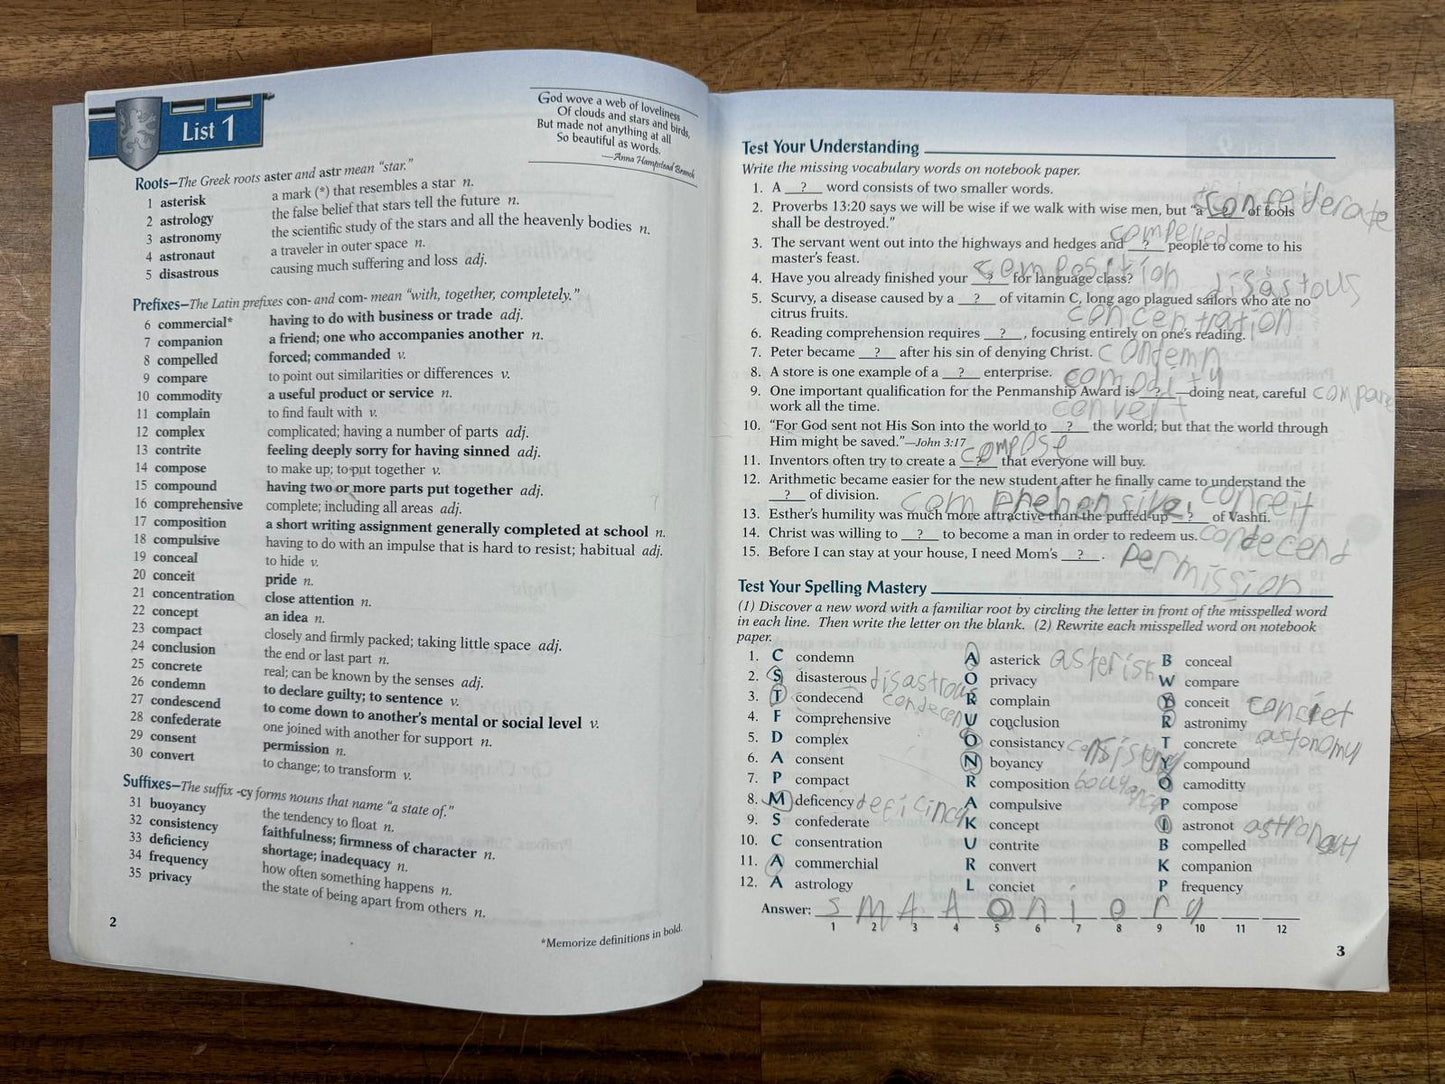 List 1
God wove a web of loveliness
Of clouds and stars and birds,
But made not anything at all
So beautiful as words.
—Anna Hampstead Branch
Roots—The Greek roots aster and astr mean “star.”
1 asterisk a mark (*) that resembles a star n.
2 astrology the false belief that stars tell the future n.
3 astronomy the scientific study of the stars and all the heavenly bodies n.
4 astronaut a traveler in outer space n.
5 disastrous causing much suffering and loss adj.
Prefixes—The Latin prefixes con- and com- mean “with, together, completely.”
6 commercial* having to do with business or trade adj.
7 companion a friend; one who accompanies another n.
8 compelled forced; commanded v.
9 compare to point out similarities or differences v.
10 commodity a useful product or service n.
11 complain to find fault with v.
12 complex complicated; having a number of parts adj.
13 contrite feeling deeply sorry for having sinned adj.
14 compose to make up; to put together v.
15 compound having two or more parts put together adj.
16 comprehensive complete; including all areas adj.
17 composition a short writing assignment generally completed at school n.
18 compulsive having to do with an impulse that is hard to resist; habitual adj.
19 conceal to hide v.
20 conceit pride n.
21 concentration close attention n.
22 concept an idea n.
23 compact closely and firmly packed; taking little space adj.
24 conclusion the end or last part n.
25 concrete real; can be known by the senses adj.
26 condemn to declare guilty; to sentence v.
27 condescend to come down to another's mental or social level v.
28 confederate one joined with another for support n.
29 consent permission n.
30 convert to change; to transform v.
Suffixes—The suffix -cy forms nouns that name “a state of.”
31 buoyancy the tendency to float n.
32 consistency faithfulness; firmness of character n.
33 deficiency shortage; inadequacy n.
34 frequency how often something happens n.
35 privacy the state of being apart from others n.
2
*Memorize definitions in bold.
Test Your Understanding
Write the missing vocabulary words on notebook paper.
1. A ? word consists of two smaller words.
2. Proverbs 13:20 says we will be wise if we walk with wise men, but “a ? of fools confiderate
shall be destroyed.”
compelled
3. The servant went out into the highways and hedges and ? people to come to his
master's feast.
composition
4. Have you already finished your ? for language class?
disastous
5. Scurvy, a disease caused by a ? of vitamin C, long ago plagued sailors who ate no
citrus fruits.
concentration
6. Reading comprehension requires ? , focusing entirely on one's reading.
7. Peter became ? after his sin of denying Christ. condemn
8. A store is one example of a ? enterprise. comodity
9. One important qualification for the Penmanship Award is ? —doing neat, careful compare
work all the time.
convert
10. “For God sent not His Son into the world to ? the world; but that the world through
Him might be saved.”—John 3:17
compose
11. Inventors often try to create a ? that everyone will buy.
12. Arithmetic became easier for the new student after he finally came to understand the
? of division. comprehensive conceit
13. Esther's humility was much more attractive than the puffed-up ? of Vashti.
14. Christ was willing to ? to become a man in order to redeem us. condecend
15. Before I can stay at your house, I need Mom's ? . permission
Test Your Spelling Mastery
(1) Discover a new word with a familiar root by circling the letter in front of the misspelled word
in each line. Then write the letter on the blank. (2) Rewrite each misspelled word on notebook
paper.
1. C condemn A asterick asterisk B conceal
2. S disasterous disastrous O privacy W compare
3. T condecend condecend R complain Y conceit conciet
4. F comprehensive U conclusion R astronimy astonomy
5. D complex O consistancy T concrete
6. A consent N boyancy Y compound
7. P compact R composition bouyancy O camoditty
8. M deficency deficincy A compulsive P compose
9. S confederate K concept I astronot astronaut
10. C consentration U contrite B compelled
11. A commerchial R convert K companion
12. A astrology L conciet P frequency
Answer: S M A A O n i o r y
1 2 3 4 5 6 7 8 9 10 11 12
3